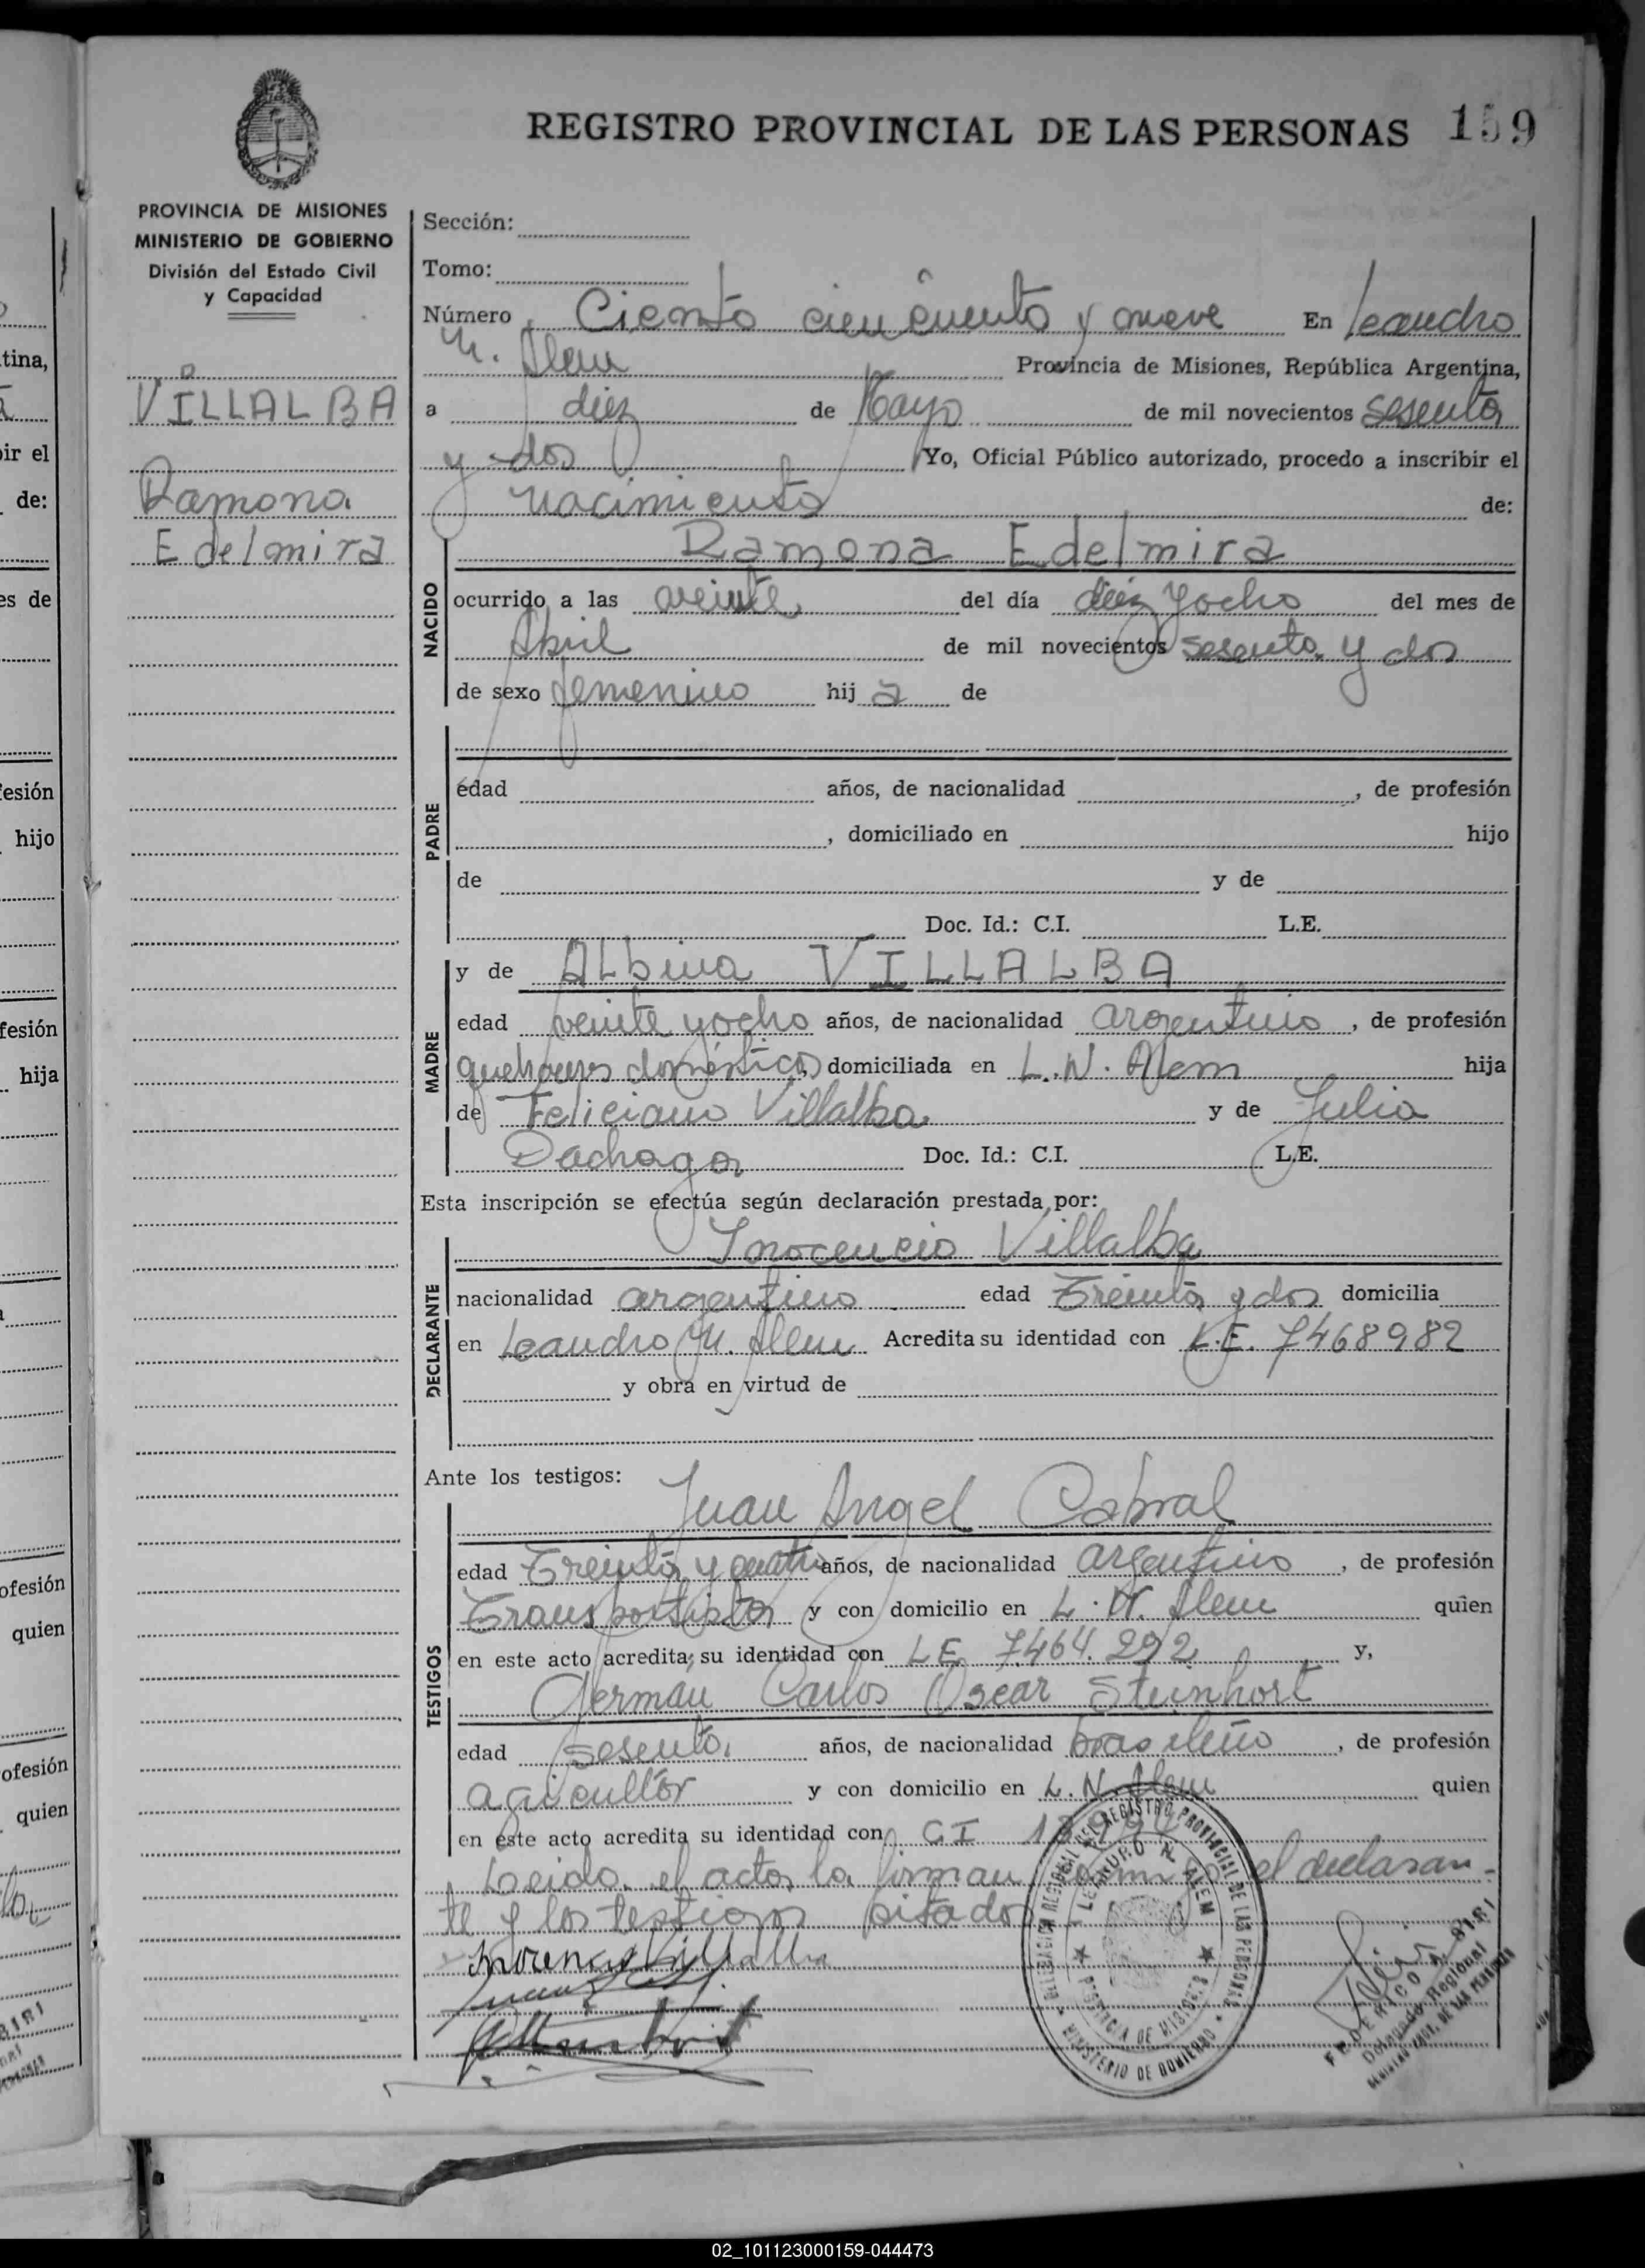 REGISTRO PROVINCIAL DE LAS PERSONAS 159
PROVINCIA DE MISIONES
MINISTERIO DE GOBIERNO
División del Estado Civil
y Capacidad
VILLALBA
Ramona
Edelmira
Sección:
Tomo:
Número Ciento cincuenta y nueve En Leandro
N. Alem Provincia de Misiones, República Argentina,
a diez de Mayo de mil novecientos sesenta
y dos Yo, Oficial Público autorizado, procedo a inscribir el
nacimiento de:
NACIDO
Ramona Edelmira
ocurrido a las veinte del día diez y ocho del mes de
Abril de mil novecientos sesenta y dos
de sexo femenino hij a de
PADRE
edad años, de nacionalidad , de profesión
, domiciliado en hijo
de y de
Doc. Id.: C.I. L.E.
MADRE
y de Albina VILLALBA
edad veinte y ocho años, de nacionalidad argentina , de profesión
quehaceres domésticos domiciliada en L. N. Alem hija
de Feliciano Villalba y de Julia
Dachaga Doc. Id.: C.I. L.E.
Esta inscripción se efectúa según declaración prestada por:
DECLARANTE
Inocencio Villalba
nacionalidad argentino edad Treinta y dos domicilia
en Leandro N. Alem Acredita su identidad con L.E. 7468982
y obra en virtud de
Ante los testigos:
TESTIGOS
Juan Angel Cabral
edad Treinta y cuatro años, de nacionalidad argentino , de profesión
Transportista y con domicilio en L. N. Alem quien
en este acto acredita su identidad con LE 7.464.292 y,
German Carlos Oscar Steinhort
edad sesenta años, de nacionalidad brasileño , de profesión
agricultor y con domicilio en L. N. Alem quien
en este acto acredita su identidad con CI
Leida el acta, la firman conmigo el declaran-
te y los testigos citados
DELEGACION REGIONAL DEL REGISTRO PROVINCIAL DE LAS PERSONAS
LEANDRO N. ALEM
PROVINCIA DE MISIONES
MINISTERIO DE GOBIERNO
FEDERICO A. BIRI
Delegado Regional
02_101123000159-044473